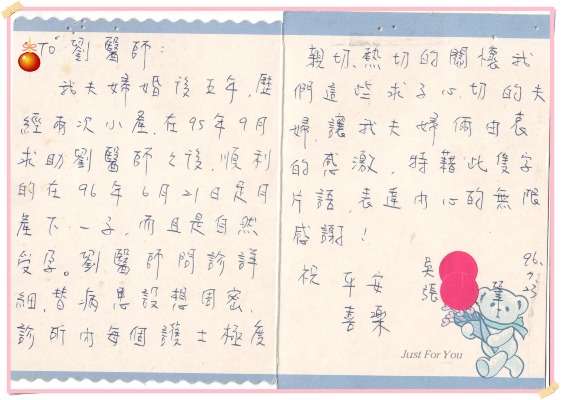 TO 劉醫師：
我夫婦婚後五年，歷
經兩次小產，在95年9月
求助劉醫師之後，順利
的在96年6月21日足月
產下一子，而且是自然
受孕。劉醫師問診詳
細，替病患設想周密，
診所內每個護士極度
親切、熱切的關懷我
們這些求子心切的夫
婦，讓我夫婦倆由衷
的感激，特藉此隻字
片語，表達內心的無限
感謝！
祝 平安
喜樂
吳
張
96.
7.
23
Just For You